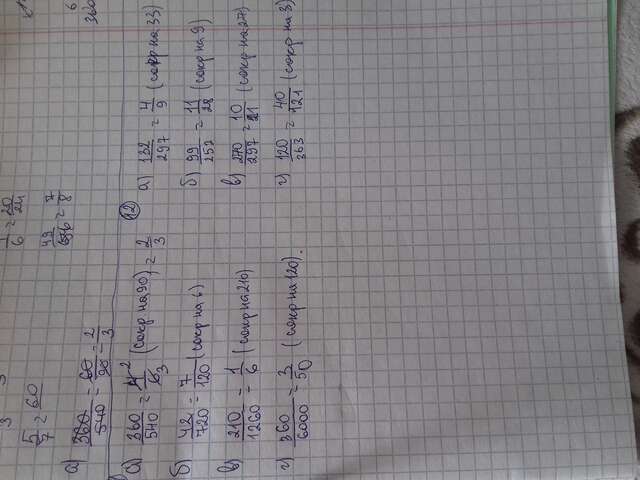 5/7 = 60
1/6 = 20/24
48/56 = 7/8
а) 360/540 = 60/90 = 2/3
12
а) 360/540 = 4 2/3 (сокр на 90) = 2/3
б) 42/720 = 7/120 (сокр на 6)
в) 210/1260 = 1/6 (сокр на 210)
г) 360/6000 = 3/50 (сокр на 120).
а) 132/297 = 4/9 (сокр на 33)
б) 99/252 = 11/28 (сокр на 9)
в) 270/297 = 10/11 (сокр на 27)
г) 120/363 = 40/121 (сокр на 3)